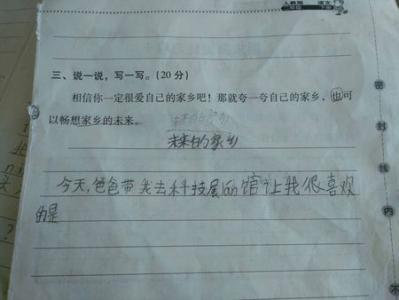 三、说一说,写一写。(20分)
相信你一定很爱自己的家乡吧!那就夸一夸自己的家乡,也可
以畅想家乡的未来。
未来的家乡
今天,爸爸带我去科技展的馆让我很喜欢
的是
密
封
线
内
不